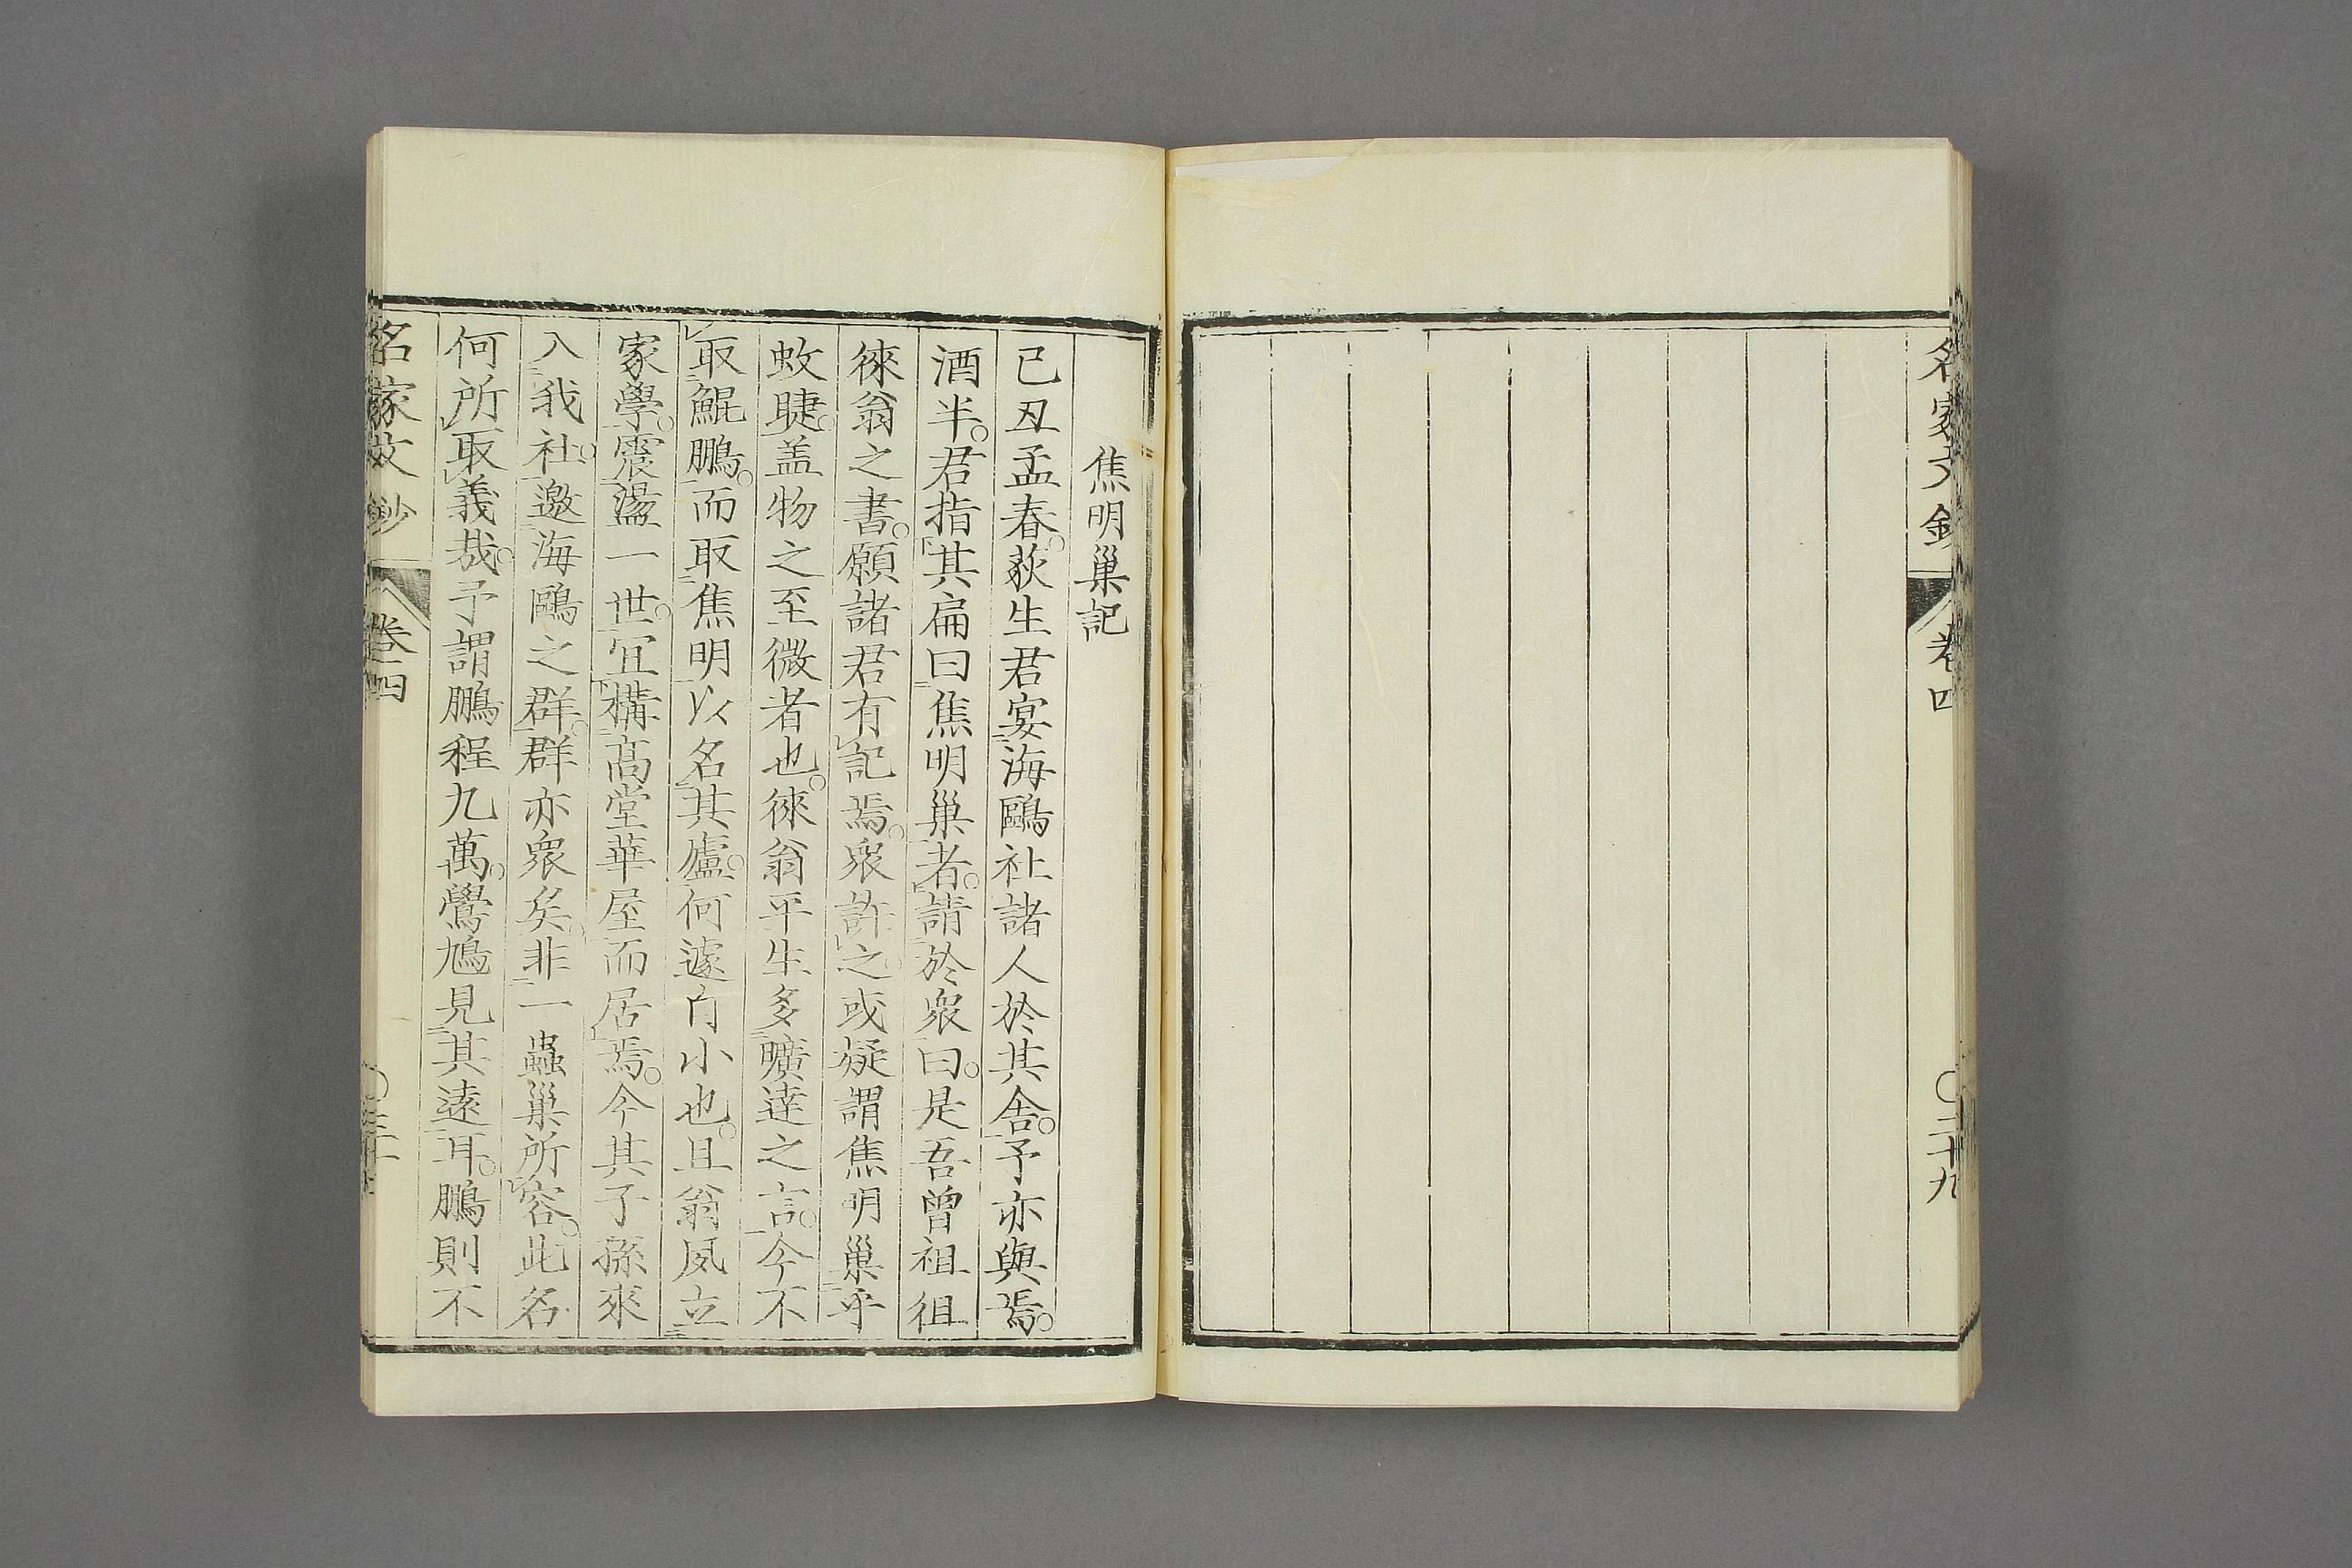 名家文鈔
卷四
〇二十九
焦明巢記
己丑孟春。荻生君宴海鷗社諸人於其舍。予亦與焉。
酒半。君指其扁曰焦明巢者。請於衆曰。是吾曾祖徂
徠翁之書。願諸君有記焉。衆許之。或疑謂焦明巢乎
蚊睫。盖物之至微者也。徠翁平生多曠達之言。今不
取鯤鵬。而取焦明以名其廬。何遽自小也。且翁夙立
家學。震盪一世。宜構高堂華屋而居焉。今其子孫來
入我社。邀海鷗之群。群亦衆矣。非一蟲巢所容。此名
何所取義哉。予謂鵬程九萬。鷽鳩見其遠耳。鵬則不
名家文鈔
卷四